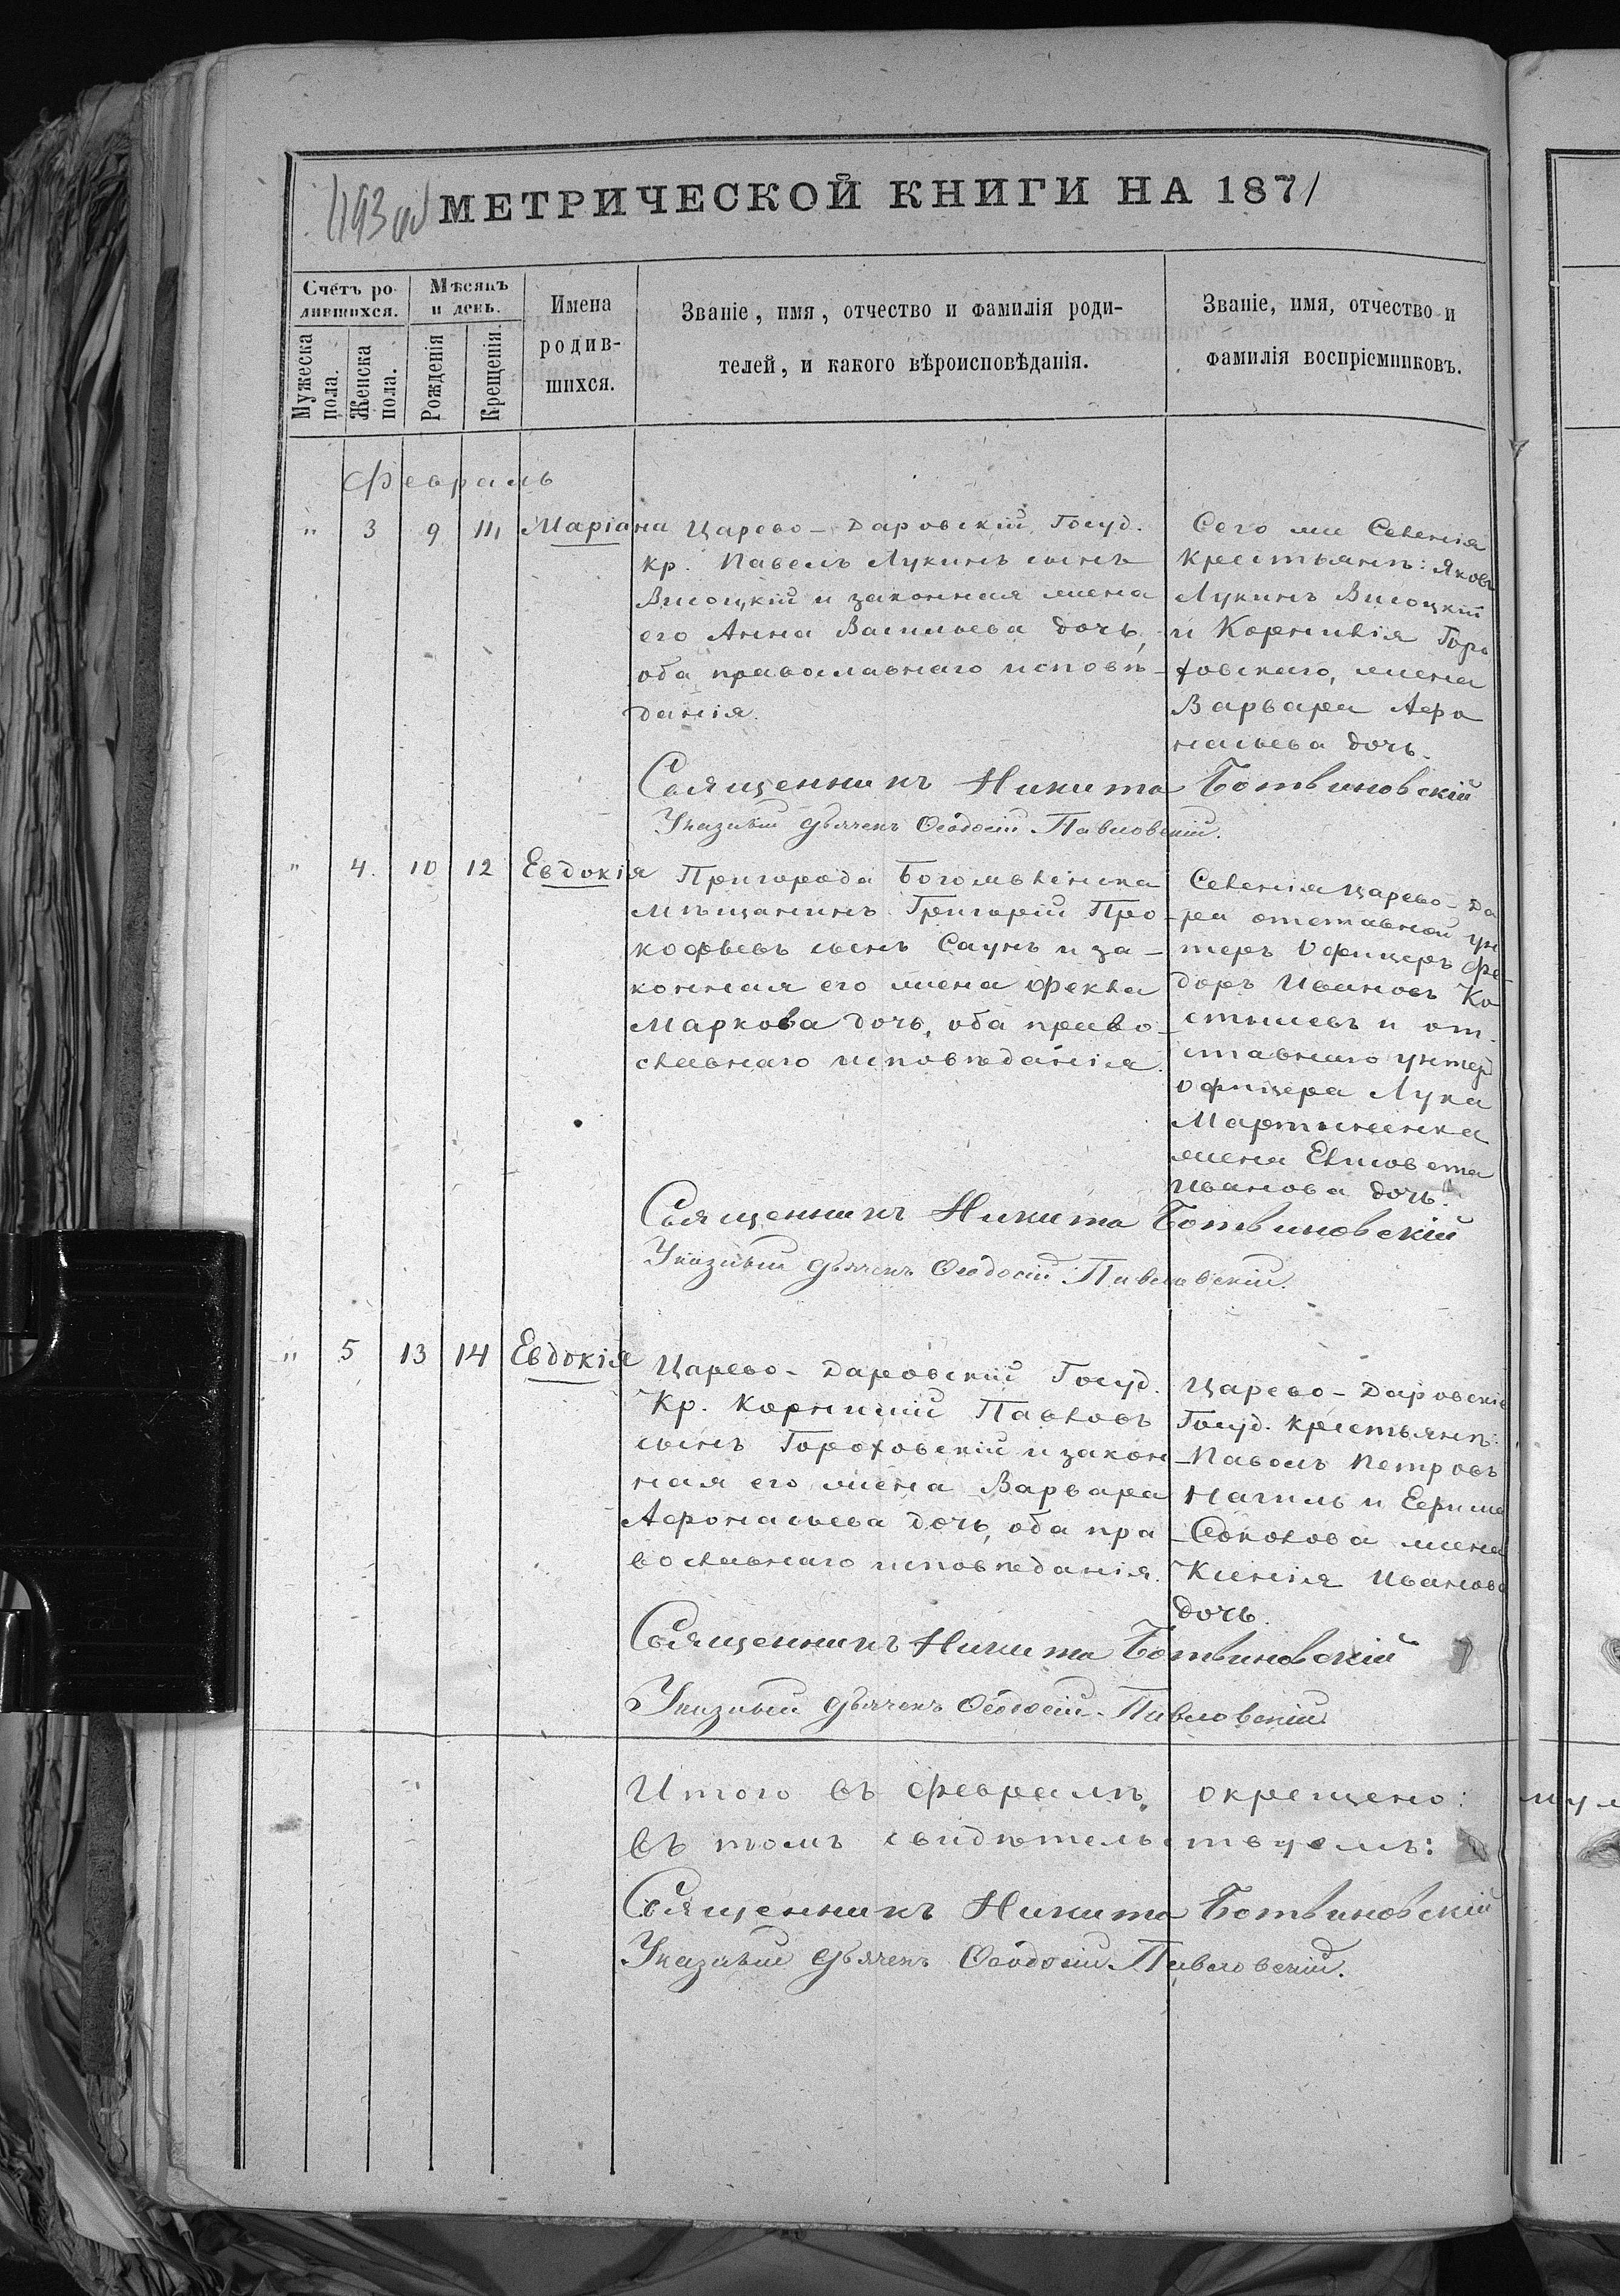 МЕТРИЧЕСКОЙ КНИГИ НА 1871
Счетъ ро-
дившихся.
Мѣсяцъ
и день.
Мужеска пола.
Женска пола.
Рожденія
Крещенія.
Имена
родив-
шихся.
Званіе, имя, отчество и фамилія роди-
телей, и какого вѣроисповѣданія.
Званіе, имя, отчество и
фамилія воспріемниковъ.
Февраль
" 3 9 Маріана
Царево-Даровскій Госуд.
кр. Павелъ Лукинъ сынъ
Висоцкій и законная жена
его Анна Васильева дочь,
оба православнаго исповѣ-
данія.
Сего же Селенія
крестьянъ: Яковъ
Лукинъ Висоцкій
и Корнилія Горо
ховскаго, жена
Варвара Афо
насьева дочь.
Священникъ Никита Ботвиновскій
Указный дьячекъ Ѳеодосій Павловскій.
" 4. 10 12 Евдокія
Пригорода Боголвленска
мѣщанинъ Григорій Про-
кофьевъ сынъ Саунъ и за-
конная его жена Фекла
Маркова дочь, оба право-
славнаго исповѣданія.
Селенія Царево-Да
ра отставной ун
теръ Офицеръ Фе-
доръ Ивановъ Ко
стылевъ и от-
ставнаго унтер
офицера Лука
Мартыненка
жена Елисовета
Иванова дочь.
Священникъ Никита Ботвиновскій
Указный дьячекъ Ѳеодосій Павловскій.
" 5 13 14 Евдокія
Царево-Даровскій Госуд.
Кр. Корнилій Павловъ
сынъ Гороховскій и закон
ная его жена Варвара
Афонасьева дочь, оба пра
вославнаго исповѣданія.
Царево-Даровскіе
Госуд. крестьянъ:
Павелъ Петровъ
Нагиль и Ефима
Соколова жена
Ксенія Иванова
дочь.
Священникъ Никита Ботвиновскій
Указный дьячекъ Ѳеодосій Павловскій
Итого въ февралѣ окрещено:
въ томъ свидѣтельствуемъ:
Священникъ Никита Ботвиновскій
Указный дьячекъ Ѳеодосій Павловскій.